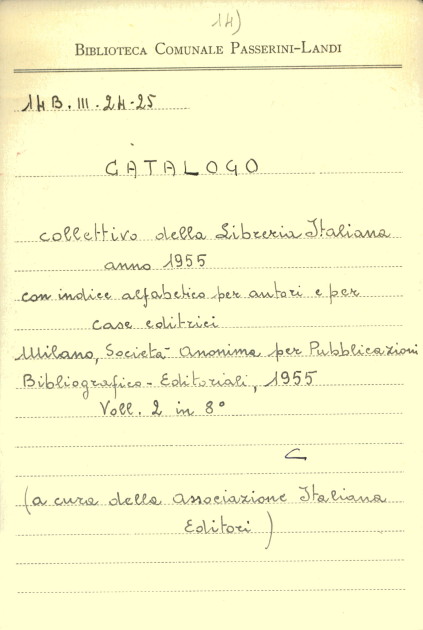 14)
BIBLIOTECA COMUNALE PASSERINI-LANDI
14B.III.24-25
CATALOGO
collettivo della Libreria Italiana
anno 1955
con indice alfabetico per autori e per
case editrici
Milano, Società Anonima per Pubblicazioni
Bibliografico-Editoriali, 1955
Voll. 2 in 8°
C
(a cura della Associazione Italiana
Editori)